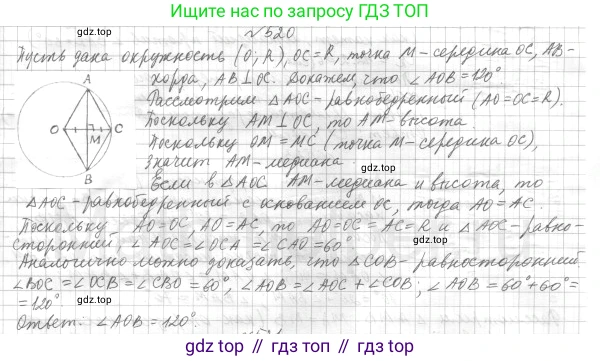 Ищите нас по запросу ГДЗ ТОП
№520
Пусть дана окружность (O; R), OC=R, точка M-середина OC, AB-
хорда, AB⊥OC. Докажем, что ∠AOB=120°.
Рассмотрим △AOC-равнобедренный (AO=OC=R).
Поскольку AM⊥OC, то AM-высота.
Поскольку OM=MC (точка M-середина OC),
значит AM-медиана.
Если в △AOC AM-медиана и высота, то
△AOC-равнобедренный с основанием OC, тогда AO=AC.
Поскольку AO=OC, AO=AC, то AO=OC=AC=R и △AOC-равно-
сторонний, ∠AOC=∠OCA=∠CAO=60°.
Аналогично можно доказать, что △COB-равносторонний.
∠BOC=∠OCB=∠CBO=60°, ∠AOB=∠AOC+∠COB; ∠AOB=60°+60°=
=120°
Ответ: ∠AOB=120°
A
O
M
C
B
gdz.top
gdz.top
gdz.top
gdz.top
gdz.top
gdz.top
gdz.top
gdz.top
gdz.top